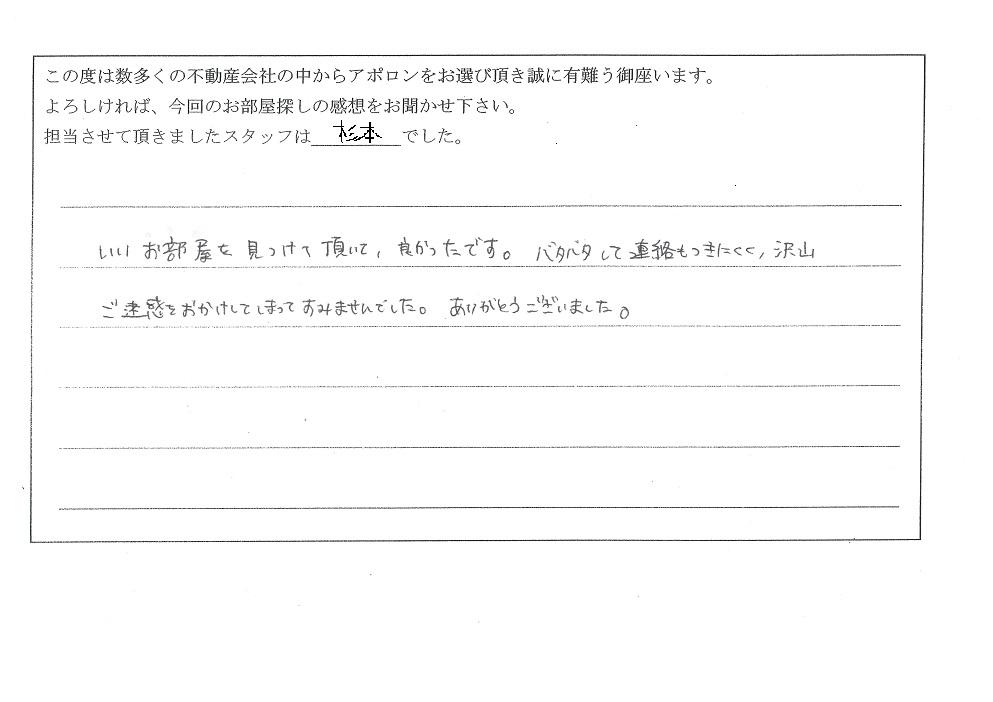 この度は数多くの不動産会社の中からアポロンをお選び頂き誠に有難う御座います。
よろしければ、今回のお部屋探しの感想をお聞かせ下さい。
担当させて頂きましたスタッフは 杉本 でした。
いい お部屋を 見つけて 頂いて, 良かったです。 バタバタして連絡もつきにくく, 沢山
ご迷惑をおかけしてしまってすみませんでした。 ありがとうございました。